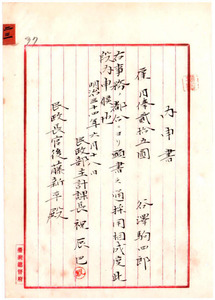 内申書
雇月俸貳拾五圓
谷澤駒四郎
右事務ノ都合ニヨリ頭書ノ通採用相成度此
段内申候也
明治三十四年六月十八日
民政部主計課長祝辰巳
民政長官後藤新平殿
臺灣總督府